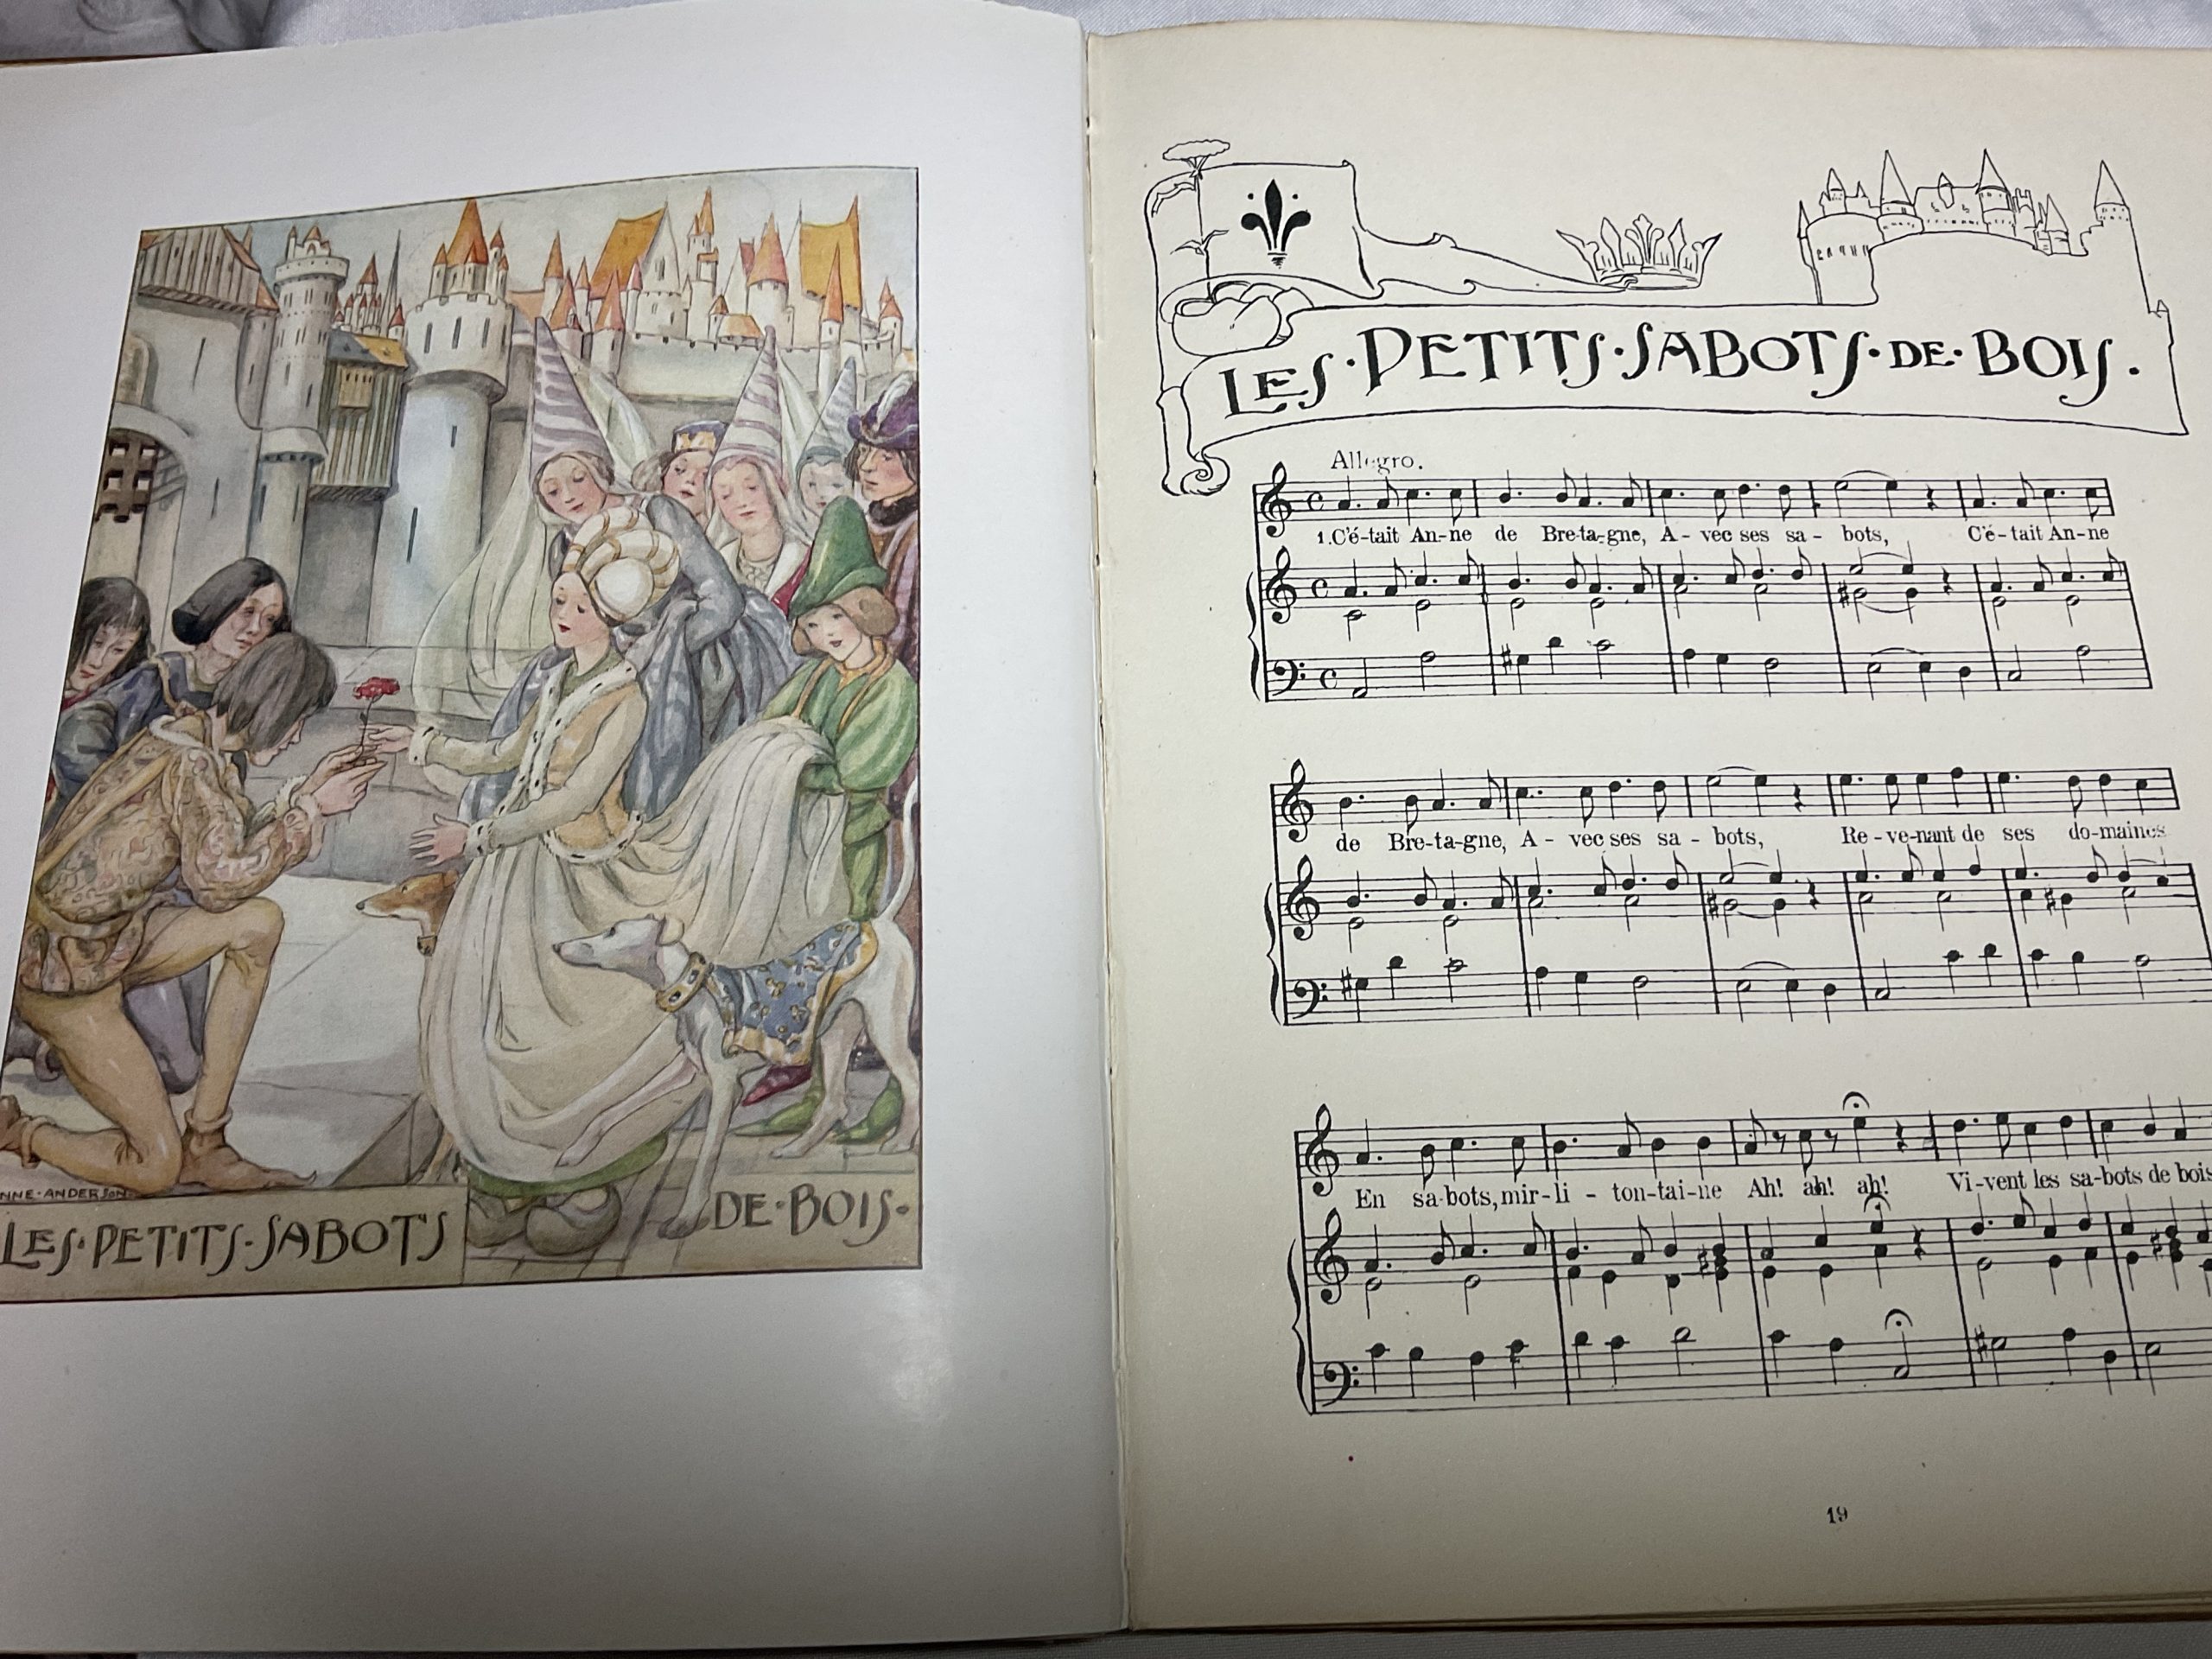 NNE·ANDERSON
LES·PETITS·SABOTS
DE·BOIS·
LES·PETITS·SABOTS·DE·BOIS.
Allegro.
1.C'é-tait An-ne de Bre-ta-gne, A - vec ses sa - bots, C'é-tait An-ne
de Bre-ta-gne, A - vec ses sa - bots, Re-ve-nant de ses do-maines
En sa-bots, mir-li - ton-tai-ne Ah! ah! ah! Vi-vent les sa-bots de bois
19